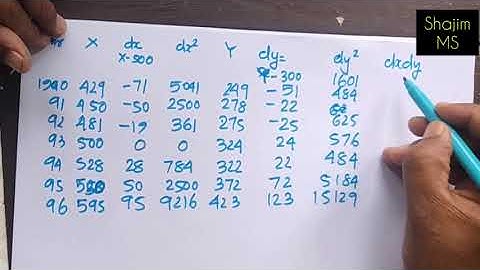 Shajim
MS
X dx dx² Y dy= dy² dxdy
X-500 -300
1990 429 -71 5041 249 -51 1601
91 450 -50 2500 278 -22 484
92 481 -19 361 275 -25 625
93 500 0 0 324 24 576
94 528 28 784 322 22 484
95 550 50 2500 372 72 5184
96 595 95 9216 423 123 15129